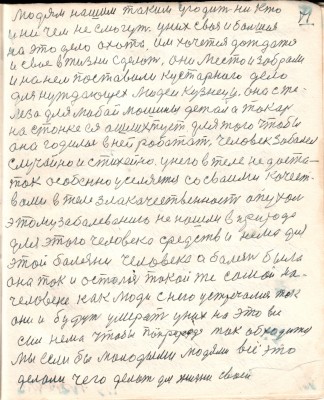 71
людям нашим таким угодит ни кто
и ни чем не смогут. у них своя и большия
на это дело охота, им хочется дождатся
и свое в жизни сделат. они место избрали
и на нем поставили кустарнаго дела
для нуждающех людей кузнецу, он с же
леза для любай машины детал а токар
на станке ся ашлихтует для того чтобы
она годилас в ней работат. человек заболел
случайно и стихейно. у него в теле не доста-
ток особенно уселяется со своими качест-
вами в теле злокачественност опухол
этому заболеванию не нашли в природе
для этого человека средств и нема для
этой болезни человека а болезн была
она так и осталас такой же самой на
человеке как люди с него устречалис так
они и будут умерат у них на это во
сил нема чтобы природу так обходити
мы если бы молодыми людями всё это
делали чего делат для жизни своей